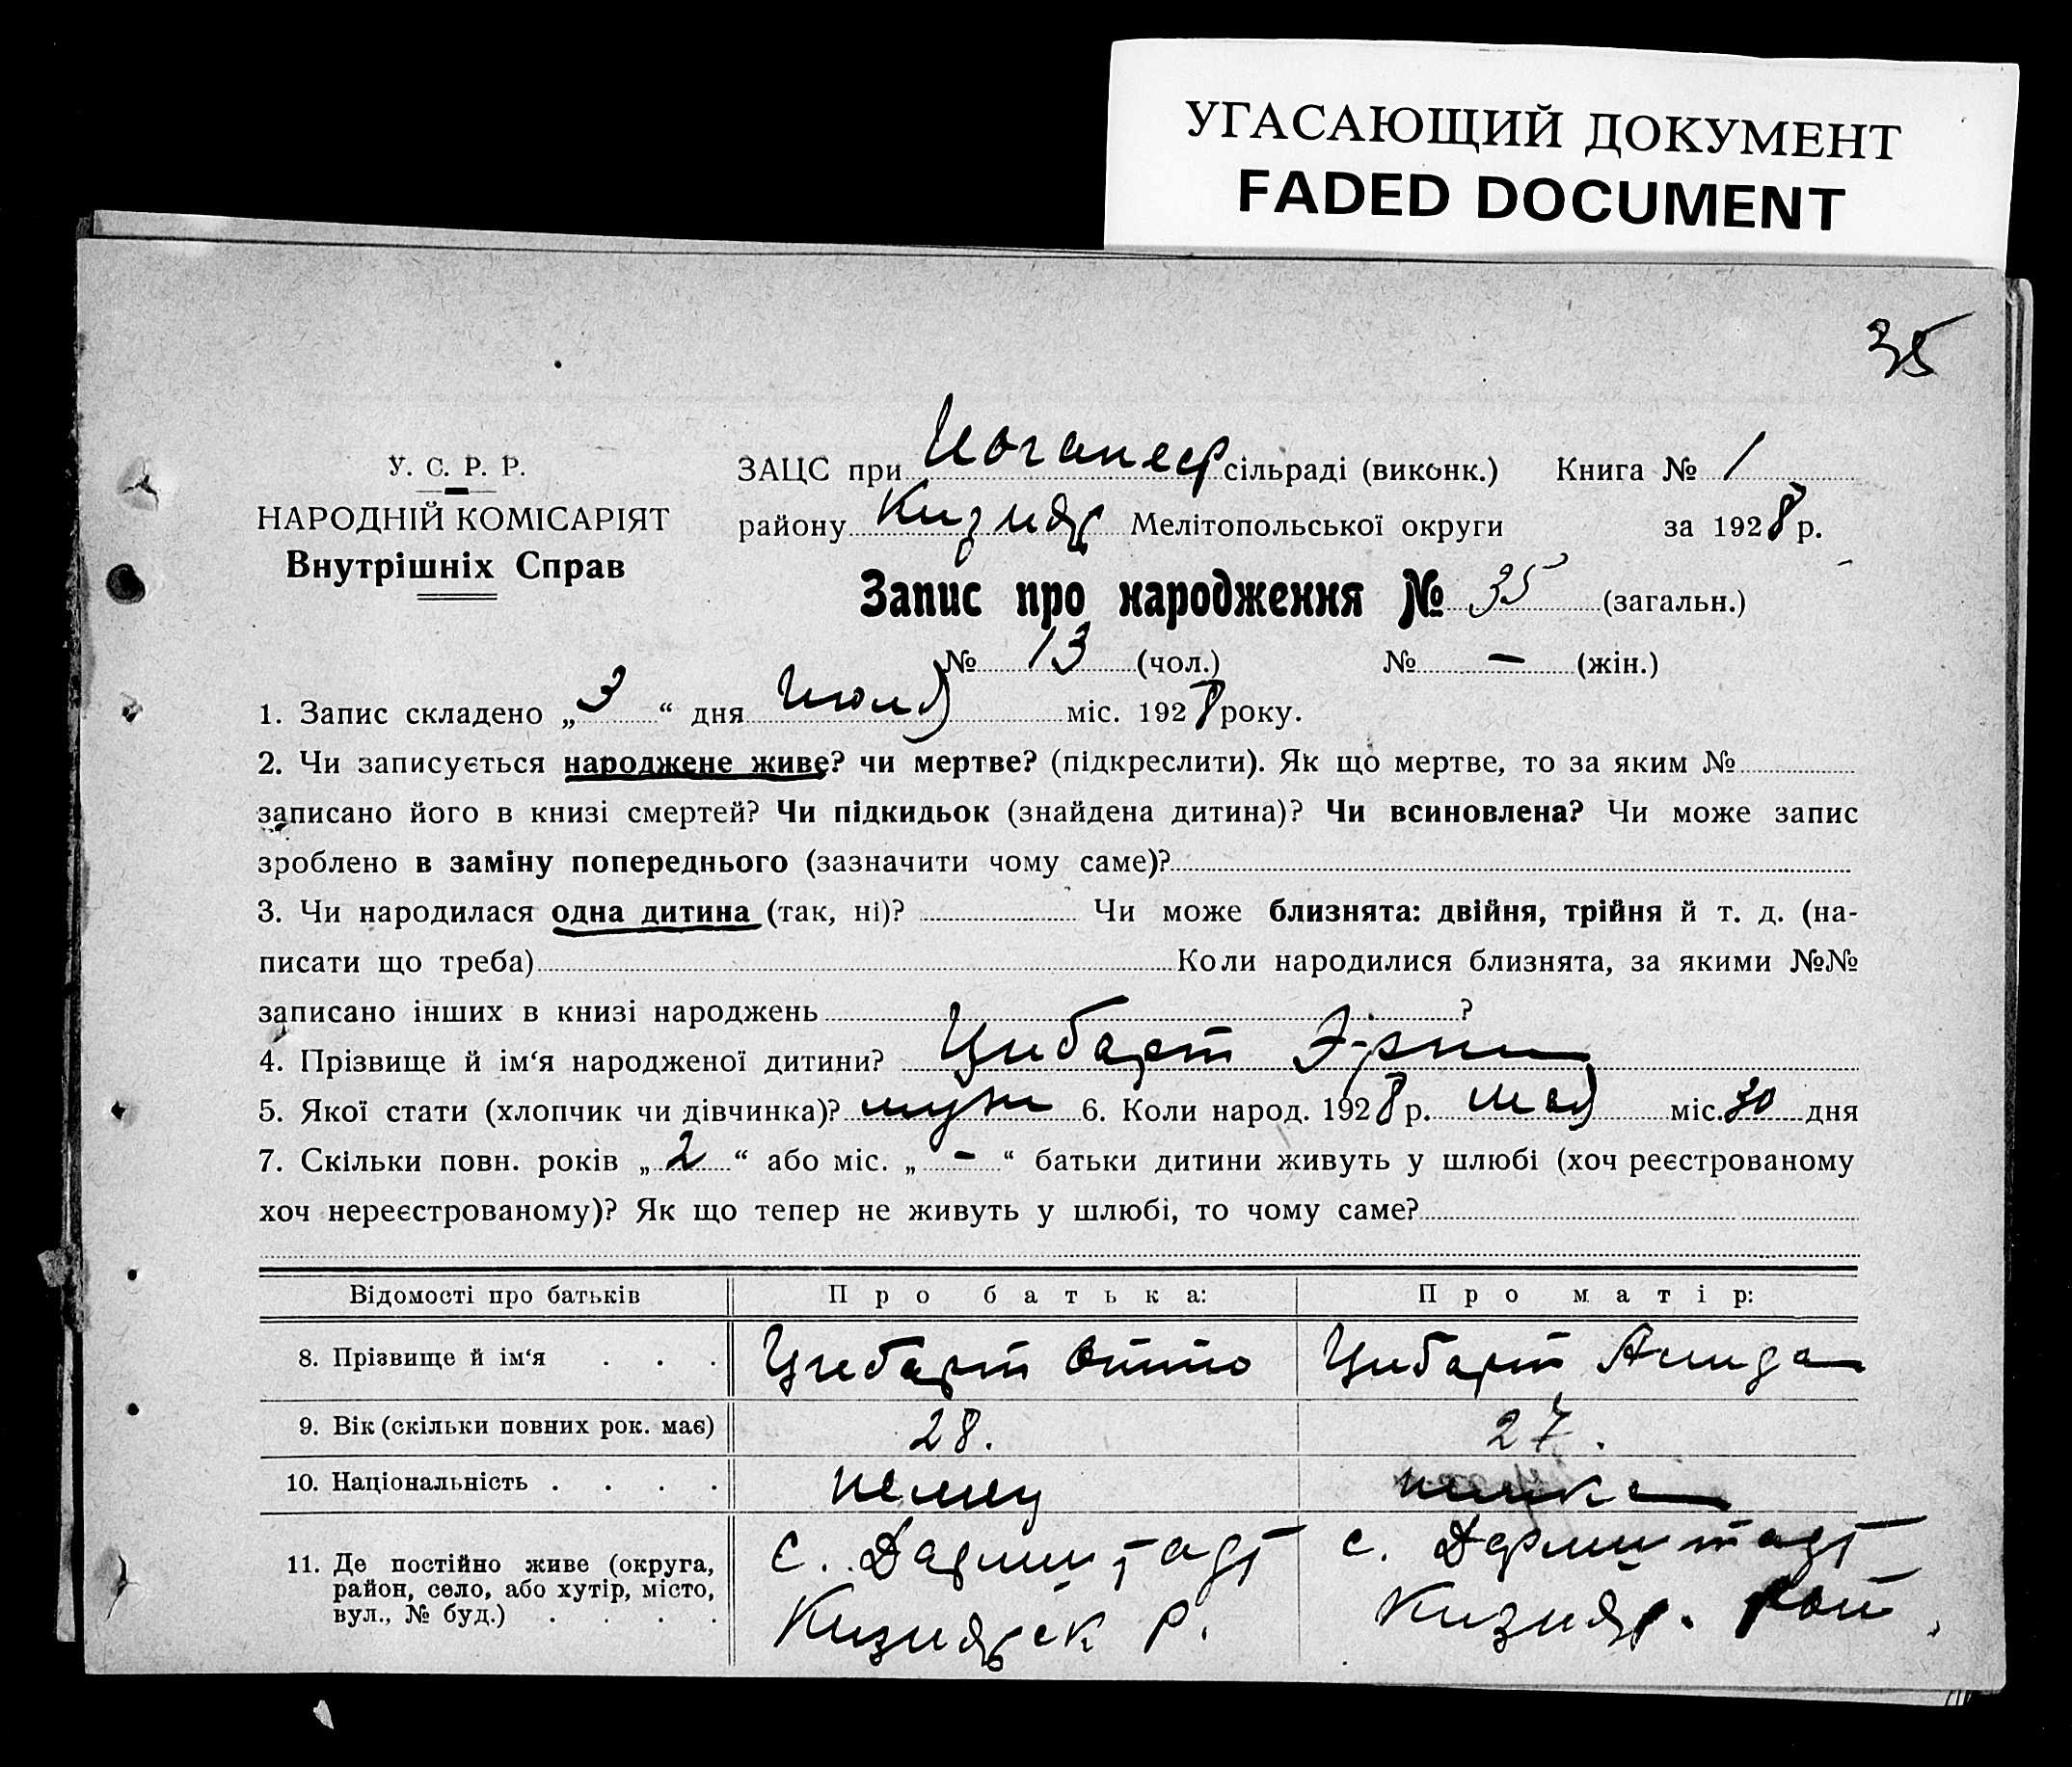 УГАСАЮЩИЙ ДОКУМЕНТ
FADED DOCUMENT
35
У. С. Р. Р.
НАРОДНІЙ КОМІСАРІЯТ
Внутрішніх Справ
ЗАЦС при Иоганеср сільраді (виконк.) Книга № 1
району Кизияр Мелітопольської округи за 1928 р.
Запис про народження № 35 (загальн.)
№ 13 (чол.) № – (жін.)
1. Запис складено „3“ дня Июля міс. 1928 року.
2. Чи записується народжене живе? чи мертве? (підкреслити). Як що мертве, то за яким №
записано його в книзі смертей? Чи підкидьок (знайдена дитина)? Чи всиновлена? Чи може запис
зроблено в заміну попереднього (зазначити чому саме)?
3. Чи народилася одна дитина (так, ні)? Чи може близнята: двійня, трійня й т. д. (на-
писати що треба) Коли народилися близнята, за якими №№
записано інших в книзі народжень ?
4. Прізвище й ім‘я народженої дитини? Цибарт
5. Якої стати (хлопчик чи дівчинка)? муж 6. Коли народ. 1928 р. мая міс. 30 дня
7. Скільки повн. років „2“ або міс. „–“ батьки дитини живуть у шлюбі (хоч реєстрованому
хоч нереєстрованому)? Як що тепер не живуть у шлюбі, то чому саме?
Відомості про батьків Про батька: Про матір:
8. Прізвище й ім‘я . . . Цибарт Отто Цибарт
9. Вік (скільки повних рок. має) 28. 27.
10. Національність . . . . немец немка
11. Де постійно живе (округа,
район, село, або хутір, місто,
вул., № буд.) . . . .
с. Дармштадт
Кизиярск р.
с. Дармштадт
Кизияр. рай.